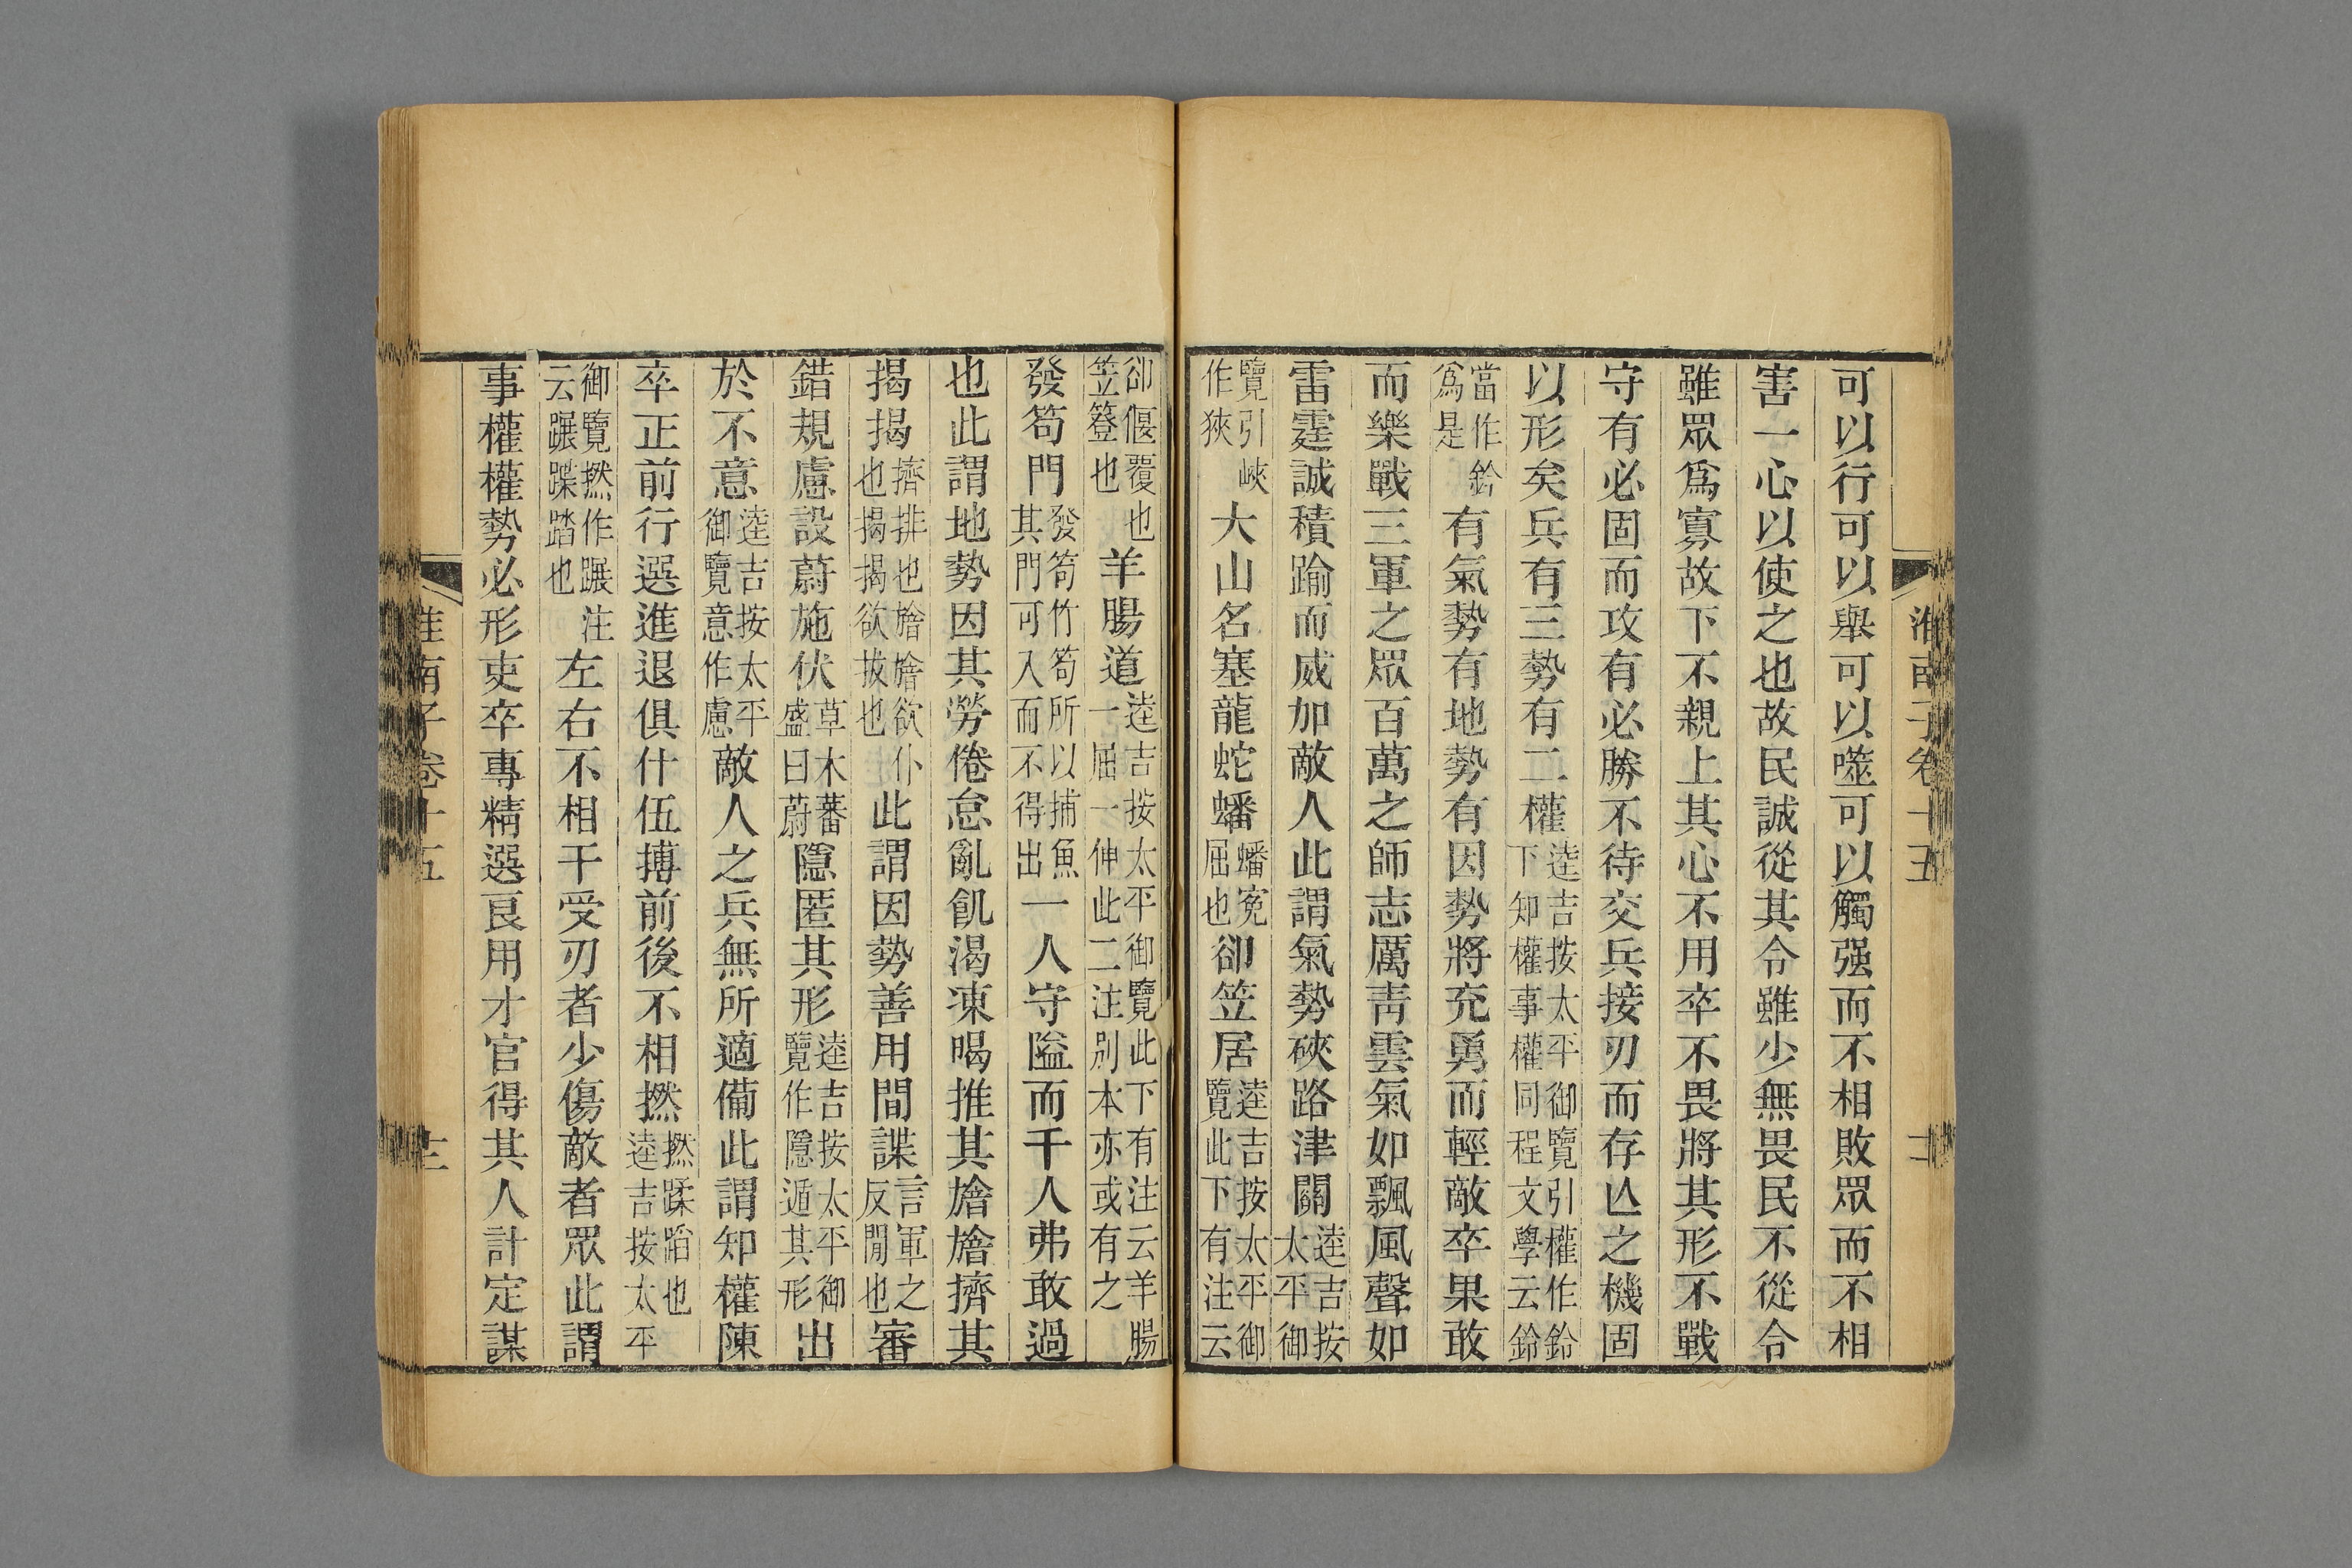 可以行可以舉可以噬可以觸强而不相敗眾而不相
害一心以使之也故民誠從其令雖少無畏民不從令
雖眾爲寡故下不親上其心不用卒不畏將其形不戰
守有必固而攻有必勝不待交兵接刃而存亾之機固
以形矣兵有三勢有二權逵吉按太平御覽引權作鈐下知權事權同程文學云鈐
當作鈐爲是有氣勢有地勢有因勢將充勇而輕敵卒果敢
而樂戰三軍之眾百萬之師志厲靑雲氣如飄風聲如
雷霆誠積踰而威加敵人此謂氣勢硤路津關逵吉按太平御
覽引峽作狹大山名塞龍蛇蟠蟠寃屈也卻笠居逵吉按太平御覽此下有注云
卻偃覆也笠簦也羊腸道逵吉按太平御覽此下有注云羊腸一屈一伸此二注別本亦或有之
發笱門發笱竹笱所以捕魚其門可入而不得出一人守隘而千人弗敢過
也此謂地勢因其勞倦怠亂飢渴凍暍推其㩉㩉擠其
揭揭擠排也㩉㩉欲仆也揭揭欲拔也此謂因勢善用間諜言軍之反閒也審
錯規慮設蔚施伏草木蕃盛曰蔚隱匿其形逵吉按太平御覽作隱遁其形出
於不意逵吉按太平御覽意作慮敵人之兵無所適備此謂知權陳
卒正前行選進退俱什伍搏前後不相撚撚蹂蹈也逵吉按太平
御覽撚作蹍注云蹍蹀踏也左右不相干受刃者少傷敵者眾此謂
事權權勢必形吏卒專精選良用才官得其人計定謀
淮南子卷十五
淮南子卷十五